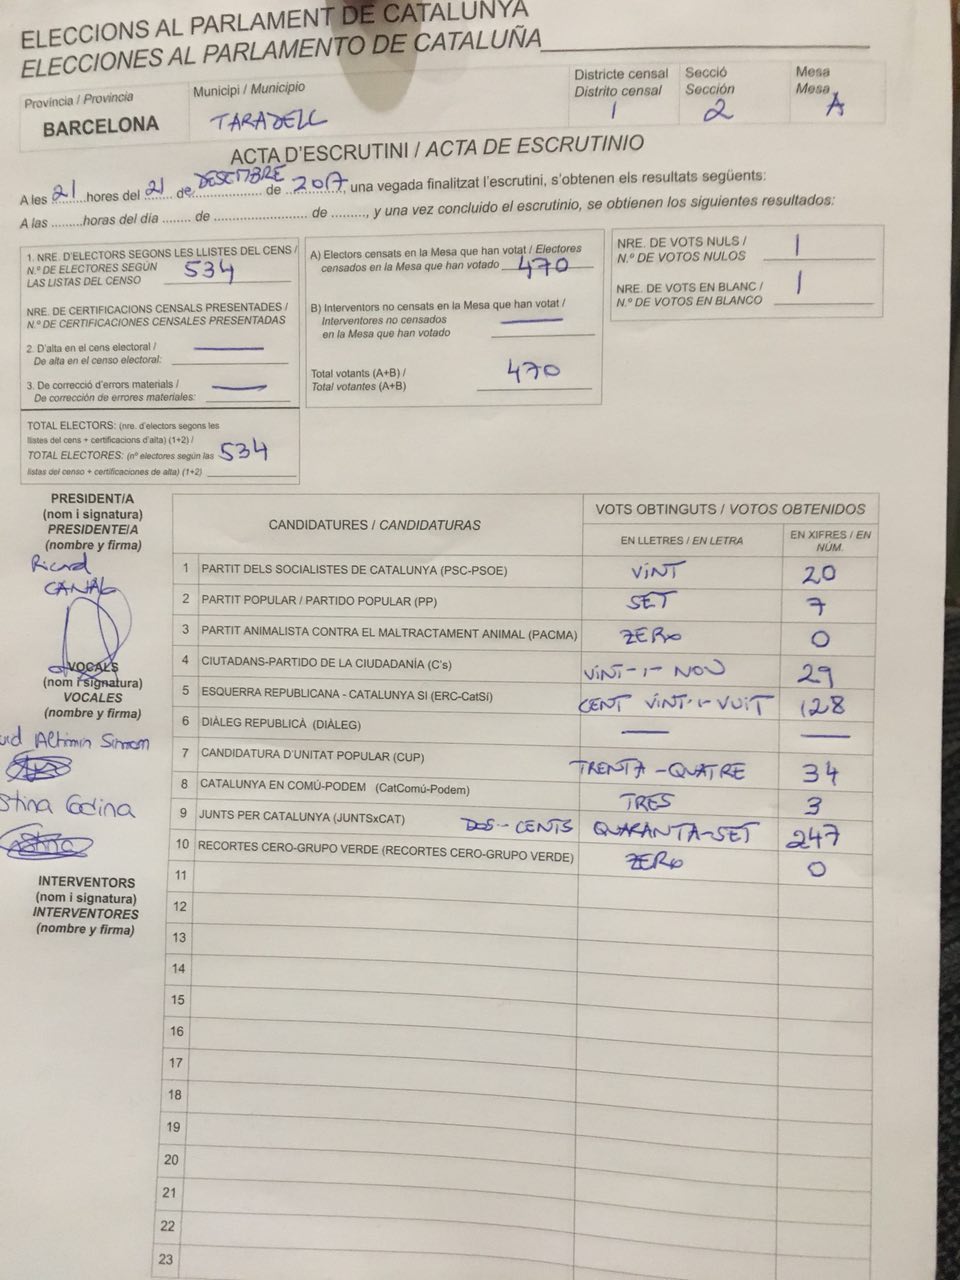 ELECCIONS AL PARLAMENT DE CATALUNYA
ELECCIONES AL PARLAMENTO DE CATALUÑA
Provincia / Provincia
BARCELONA
Municipi / Municipio
TARADELL
Districte censal
Distrito censal
1
Secció
Sección
2
Mesa
Mesa
A
ACTA D'ESCRUTINI / ACTA DE ESCRUTINIO
A les 21 hores del 21 de DESEMBRE de 2017, una vegada finalitzat l'escrutini, s'obtenen els resultats següents:
A las .........horas del día ........ de ......................... de ........., y una vez concluido el escrutinio, se obtienen los siguientes resultados:
1. NRE. D'ELECTORS SEGONS LES LLISTES DEL CENS /
N.º DE ELECTORES SEGÚN
LAS LISTAS DEL CENSO
534
NRE. DE CERTIFICACIONS CENSALS PRESENTADES /
N.º DE CERTIFICACIONES CENSALES PRESENTADAS
2. D'alta en el cens electoral /
De alta en el censo electoral:
—
3. De correcció d'errors materials /
De corrección de errores materiales:
—
TOTAL ELECTORS: (nre. d'electors segons les
llistes del cens + certificacions d'alta) (1+2) /
TOTAL ELECTORES: (nº electores según las
listas del censo + certificaciones de alta) (1+2)
534
A) Electors censats en la Mesa que han votat / Electores
censados en la Mesa que han votado 470
B) Interventors no censats en la Mesa que han votat /
Interventores no censados
en la Mesa que han votado
—
Total votants (A+B) /
Total votantes (A+B)
470
NRE. DE VOTS NULS /
N.º DE VOTOS NULOS
1
NRE. DE VOTS EN BLANC /
N.º DE VOTOS EN BLANCO
1
PRESIDENT/A
(nom i signatura)
PRESIDENTE/A
(nombre y firma)
Ricard
CANAL
VOCALS
(nom i signatura)
VOCALES
(nombre y firma)
Altimir
Codina
INTERVENTORS
(nom i signatura)
INTERVENTORES
(nombre y firma)
CANDIDATURES / CANDIDATURAS
VOTS OBTINGUTS / VOTOS OBTENIDOS
EN LLETRES / EN LETRA
EN XIFRES / EN NÚM.
1 PARTIT DELS SOCIALISTES DE CATALUNYA (PSC-PSOE) VINT 20
2 PARTIT POPULAR / PARTIDO POPULAR (PP) SET 7
3 PARTIT ANIMALISTA CONTRA EL MALTRACTAMENT ANIMAL (PACMA) ZERO 0
4 CIUTADANS-PARTIDO DE LA CIUDADANÍA (C's) VINT-I-NOU 29
5 ESQUERRA REPUBLICANA - CATALUNYA SI (ERC-CatSí) CENT VINT-I-VUIT 128
6 DIÀLEG REPUBLICÀ (DIÀLEG) — —
7 CANDIDATURA D'UNITAT POPULAR (CUP) TRENTA-QUATRE 34
8 CATALUNYA EN COMÚ-PODEM (CatComú-Podem) TRES 3
9 JUNTS PER CATALUNYA (JUNTSxCAT) DOS-CENTS QUARANTA-SET 247
10 RECORTES CERO-GRUPO VERDE (RECORTES CERO-GRUPO VERDE) ZERO 0
11
12
13
14
15
16
17
18
19
20
21
22
23